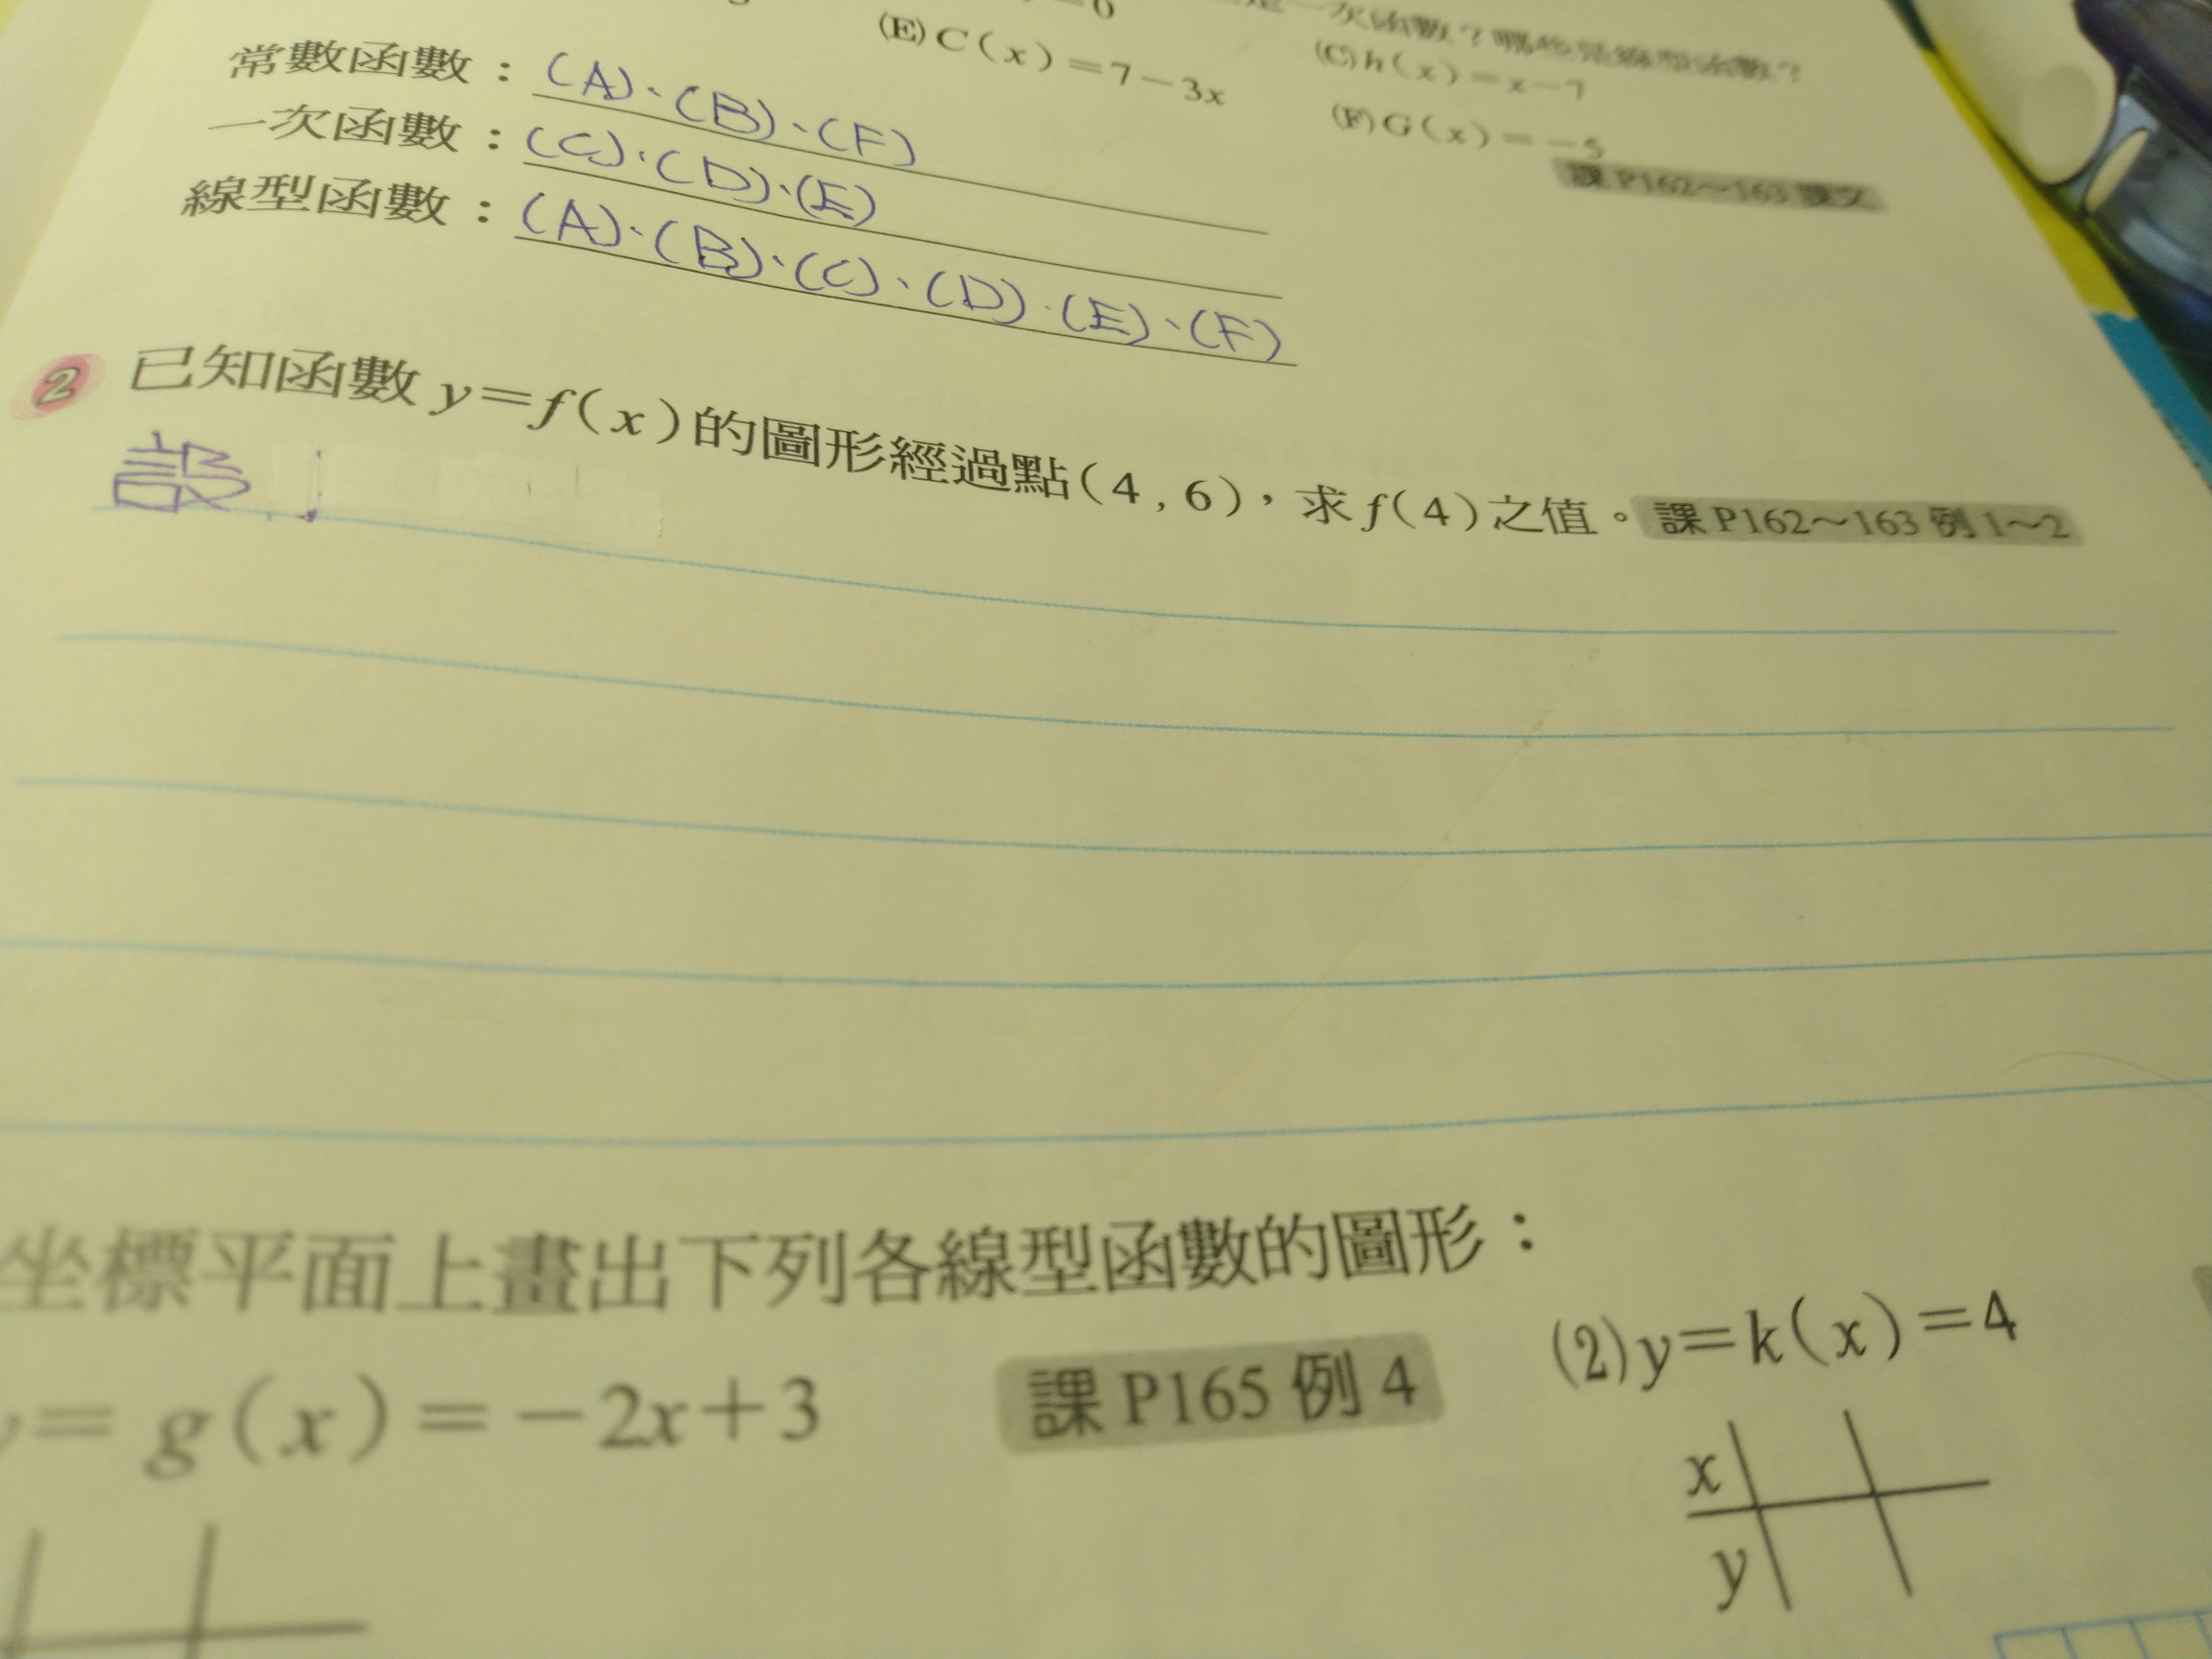 次函數？哪些是線型函數？
(E) C(x)=7-3x
(C) h(x)=x-7
(F) G(x)=-5
課 P162～163 課文
常數函數：(A)、(B)、(F)
一次函數：(C)、(D)、(E)
線型函數：(A)、(B)、(C)、(D)、(E)、(F)
2 已知函數 y=f(x)的圖形經過點(4,6)，求f(4)之值。 課 P162～163 例 1～2
設
坐標平面上畫出下列各線型函數的圖形：
= g(x)=-2x+3 課 P165 例 4
(2) y=k(x)=4
x
y